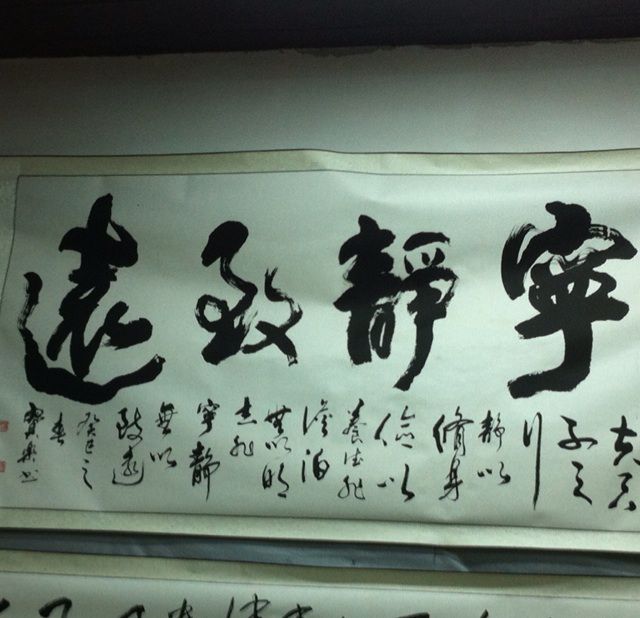 寧靜致遠
夫君
子之
行
靜以
脩身
儉以
養德非
澹泊
無以明
志非
寧靜
無以
致遠
癸巳之
春